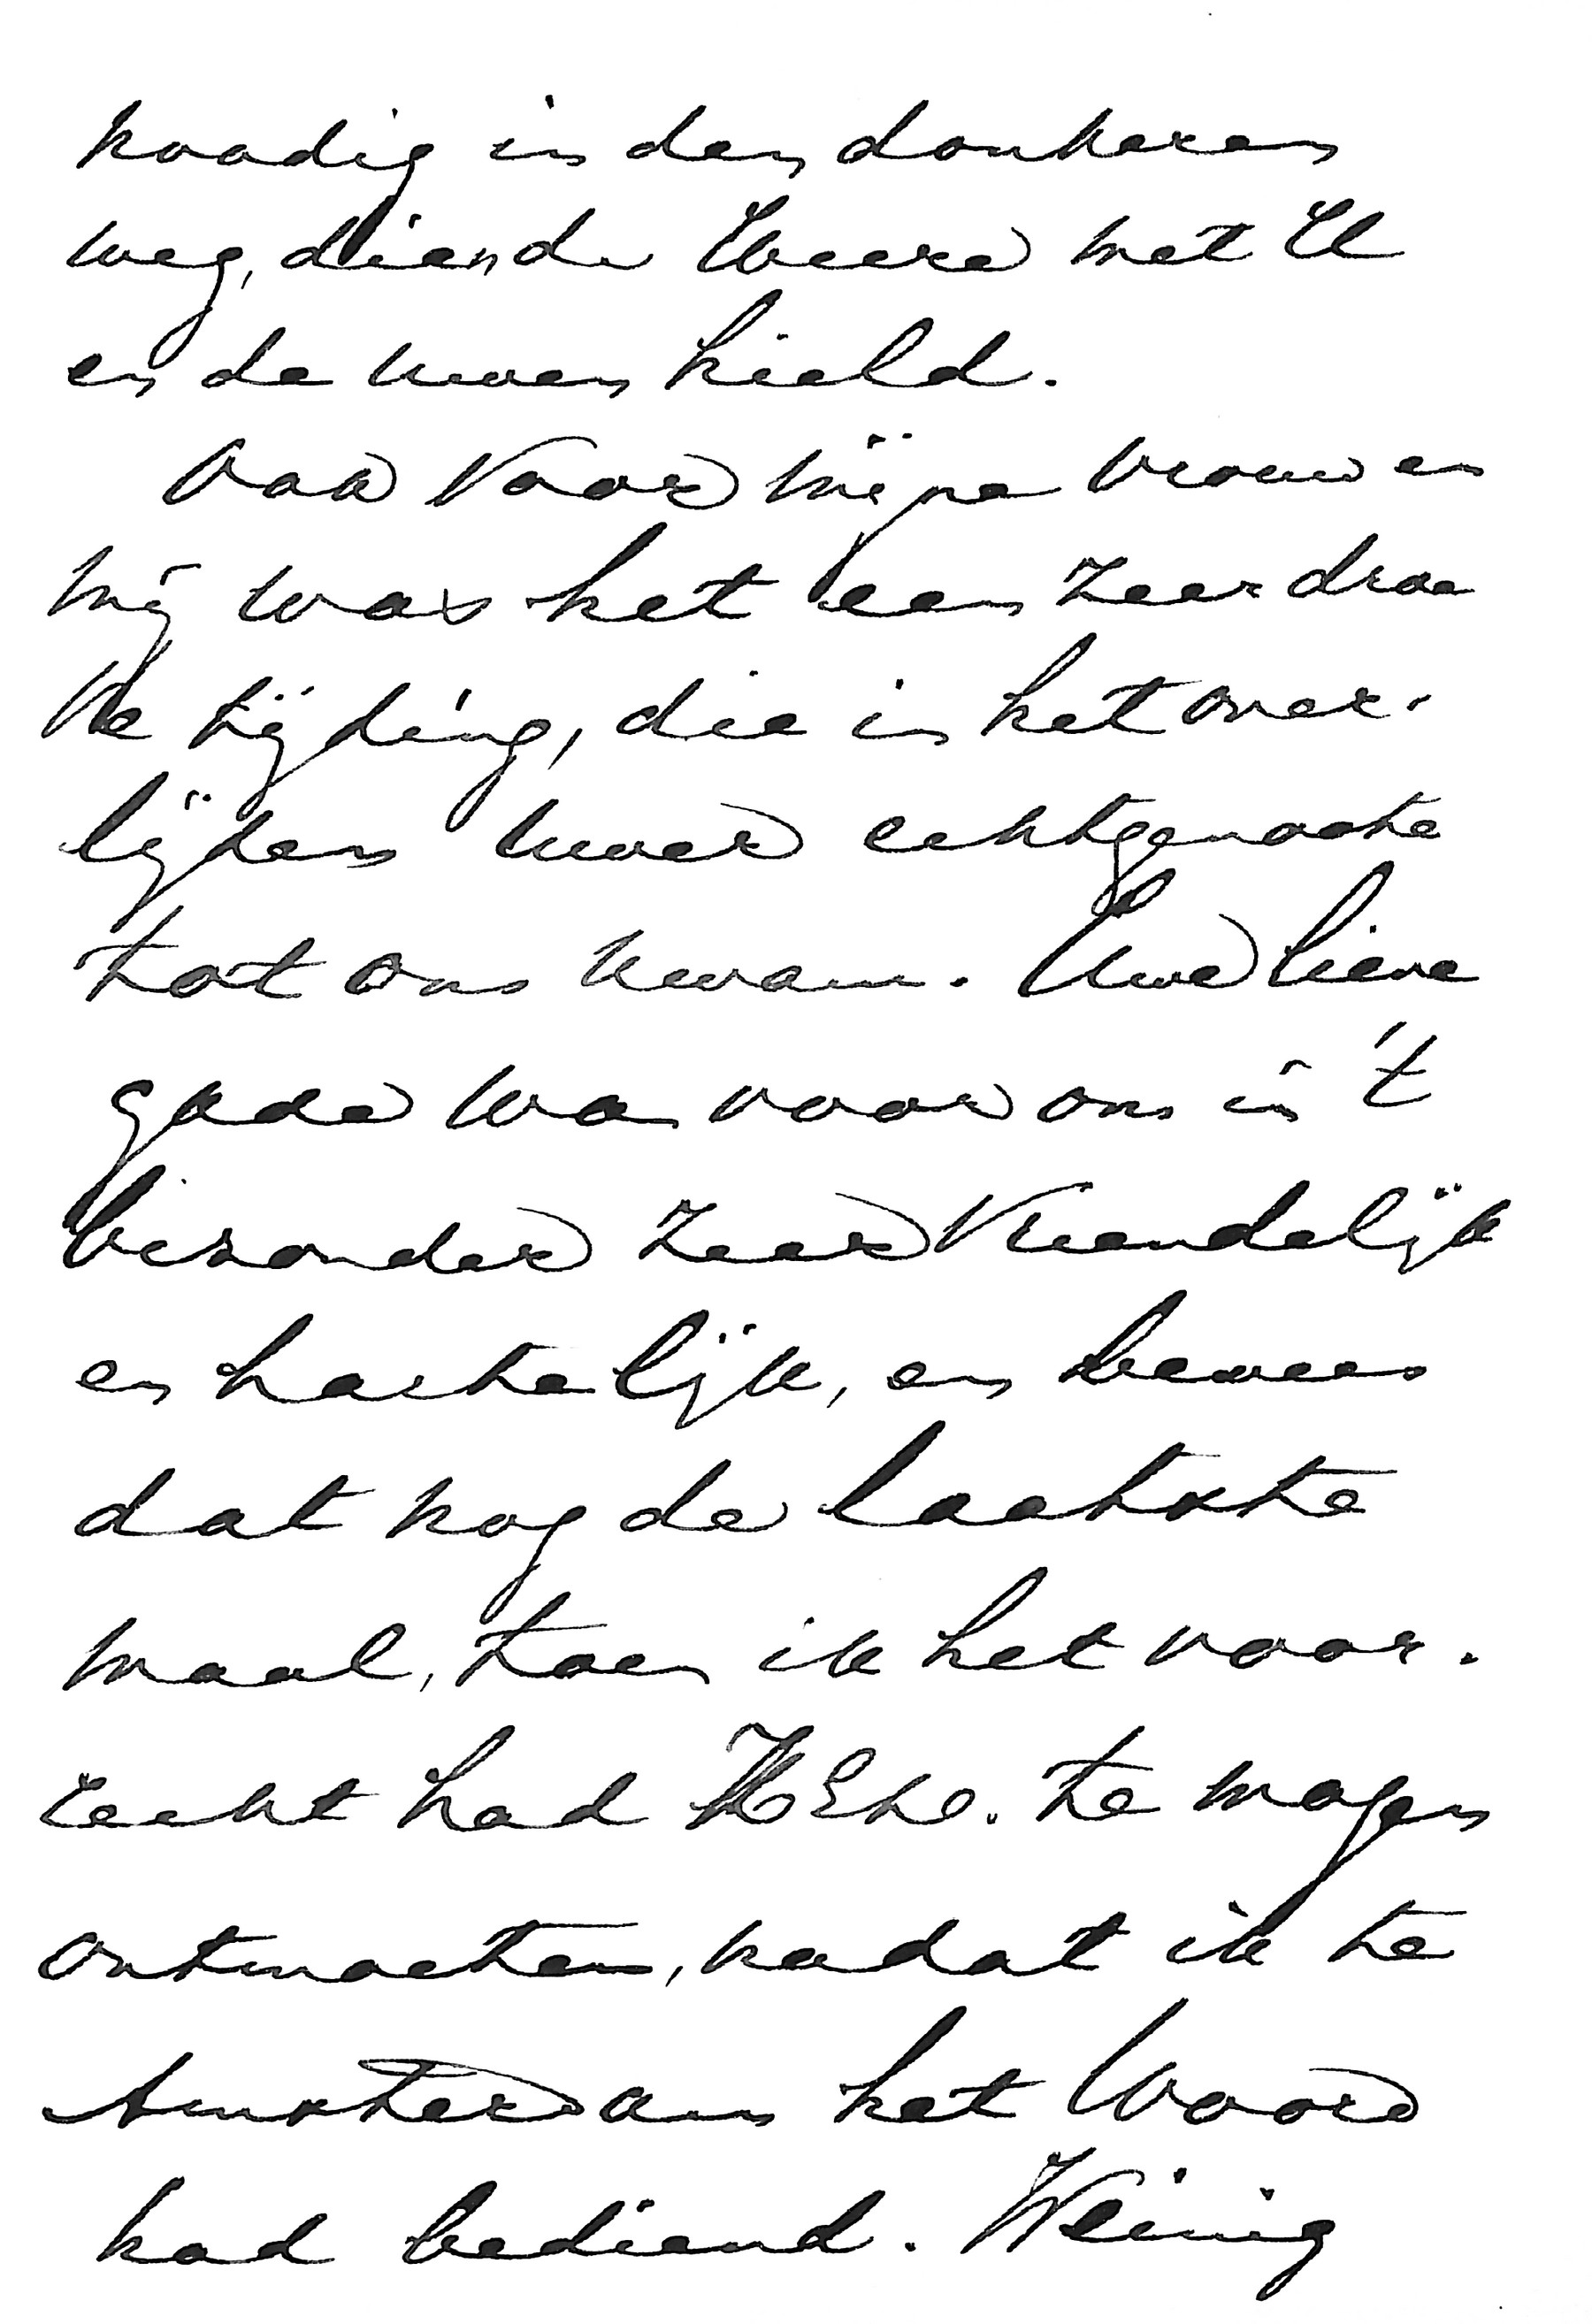 noodig in den donkeren
weg, dien de Heere met U
en de uwen hield.
Ook voor mijne vrouw en
mij was het een zeer droe
ve tijding, die in het over-
lijden uwer echtgenoote
tot ons kwam. Uwe lieve
gade was voor ons in 't
bizonder zeer vriendelijk
en hartelijk, en bewees
dat nog de laatste
maal, toen ik het voor-
recht had HEd. te mogen
ontmoeten, nadat ik te
Amsterdam het Woord
had bediend. Weinig